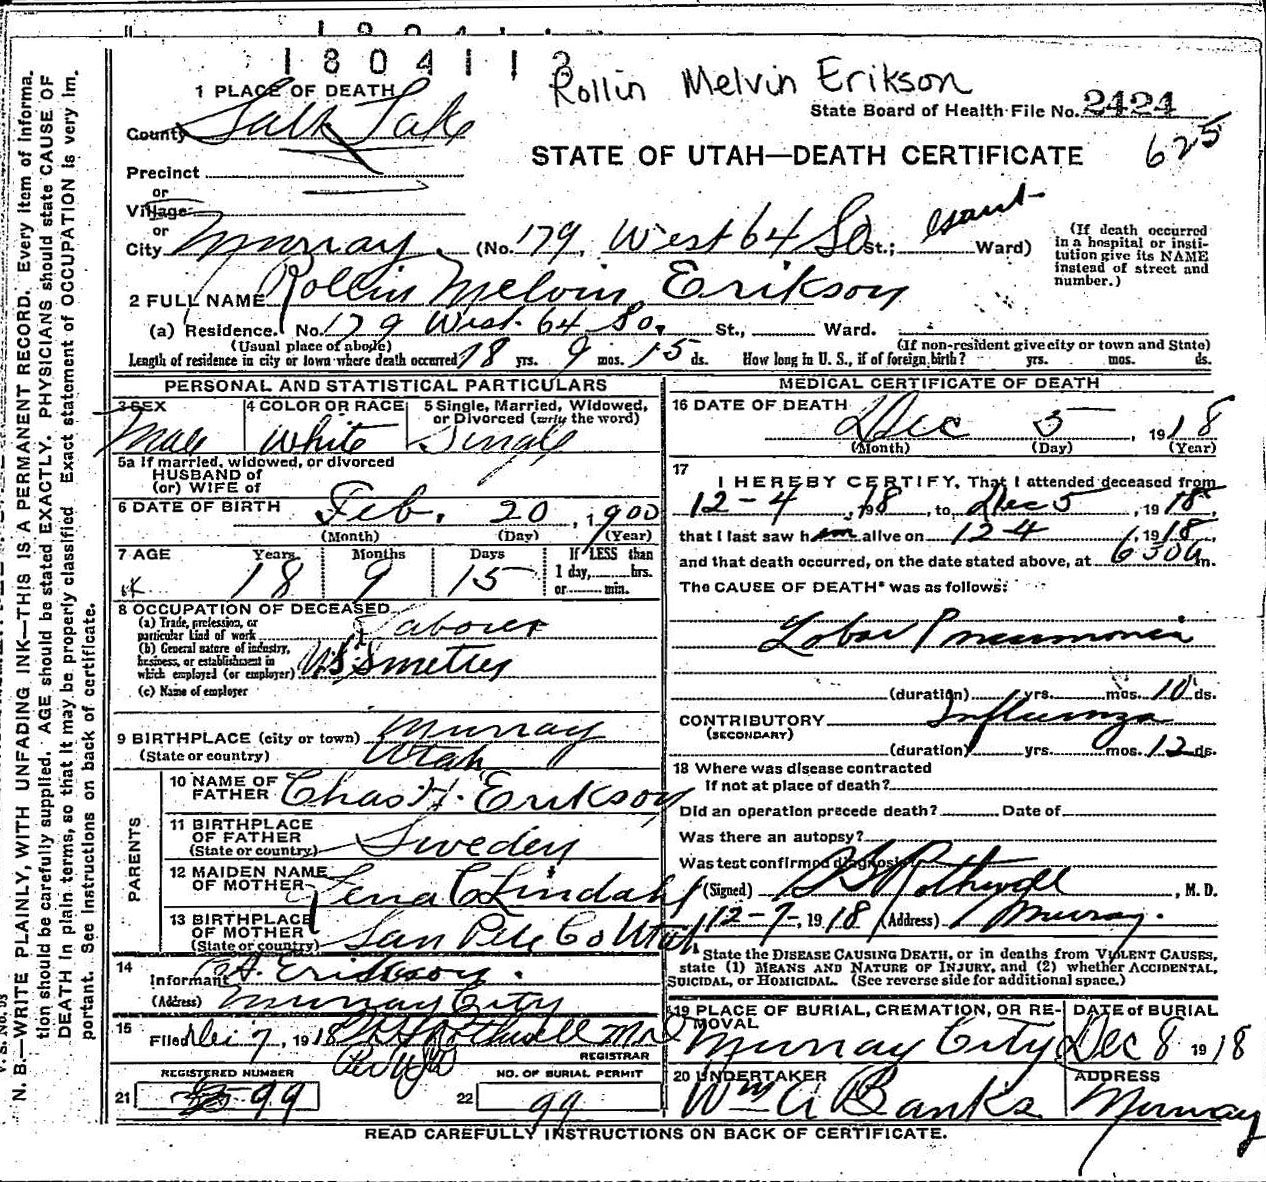 1804112
Rollin Melvin Erikson
1 PLACE OF DEATH
State Board of Health File No. 2424
County Salt Lake
625
STATE OF UTAH—DEATH CERTIFICATE
Precinct
or
Village
or
City Murray (No. 179, West 64 So St.; Ward)
(If death occurred in a hospital or insti-
tution give its NAME instead of street and number.)
2 FULL NAME Rollin Melvin Erikson
(a) Residence. No. 179 West 64 So. St., Ward.
(Usual place of abode) (If non-resident give city or town and State)
Length of residence in city or town where death occurred 18 yrs. 9 mos. 15 ds. How long in U. S., if of foreign birth? yrs. mos. ds.
PERSONAL AND STATISTICAL PARTICULARS
3 SEX Male
4 COLOR OR RACE White
5 Single, Married, Widowed, or Divorced (write the word) Single
5a If married, widowed, or divorced
HUSBAND of
(or) WIFE of
6 DATE OF BIRTH Feb. 20, 1900
(Month) (Day) (Year)
7 AGE Years 18 Months 9 Days 15
If LESS than
1 day, hrs.
or min.
8 OCCUPATION OF DECEASED
(a) Trade, profession, or particular kind of work Laborer
(b) General nature of industry, business, or establishment in which employed (or employer) U.S. Smelter
(c) Name of employer
9 BIRTHPLACE (city or town) Murray
(State or country) Utah
PARENTS
10 NAME OF FATHER Chas H. Erikson
11 BIRTHPLACE OF FATHER (State or country) Sweden
12 MAIDEN NAME OF MOTHER Lena C Lindahl
13 BIRTHPLACE OF MOTHER (State or country) San Pete Co Utah
14 Informant C H. Erickson.
(Address) Murray City
15 Filed Dec 7, 1918 Rothwell MD
REGISTRAR
REGISTERED NUMBER
21 99
NO. OF BURIAL PERMIT
22 99
MEDICAL CERTIFICATE OF DEATH
16 DATE OF DEATH Dec 5, 1918
(Month) (Day) (Year)
17 I HEREBY CERTIFY, That I attended deceased from
12-4, 1918, to Dec 5, 1918,
that I last saw him alive on 12-4, 1918,
and that death occurred, on the date stated above, at 630 a m.
The CAUSE OF DEATH* was as follows:
Lobar Pneumonia
(duration) yrs. mos. 10 ds.
CONTRIBUTORY Influenza
(SECONDARY)
(duration) yrs. mos. 12 ds.
18 Where was disease contracted
If not at place of death?
Did an operation precede death? Date of
Was there an autopsy?
Was test confirmed diagnosis
(Signed) Rothwell, M. D.
12-7-, 1918 (Address) Murray.
State the DISEASE CAUSING DEATH, or in deaths from VIOLENT CAUSES,
state (1) MEANS AND NATURE OF INJURY, and (2) whether ACCIDENTAL,
SUICIDAL, or HOMICIDAL. (See reverse side for additional space.)
19 PLACE OF BURIAL, CREMATION, OR RE-
MOVAL Murray City
DATE of BURIAL Dec 8 1918
20 UNDERTAKER Wm A Banks
ADDRESS Murray
READ CAREFULLY INSTRUCTIONS ON BACK OF CERTIFICATE.
N. B.—WRITE PLAINLY, WITH UNFADING INK—THIS IS A PERMANENT RECORD. Every item of informa-
tion should be carefully supplied. AGE should be stated EXACTLY. PHYSICIANS should state CAUSE OF
DEATH in plain terms, so that it may be properly classified. Exact statement of OCCUPATION is very im-
portant. See instructions on back of certificate.